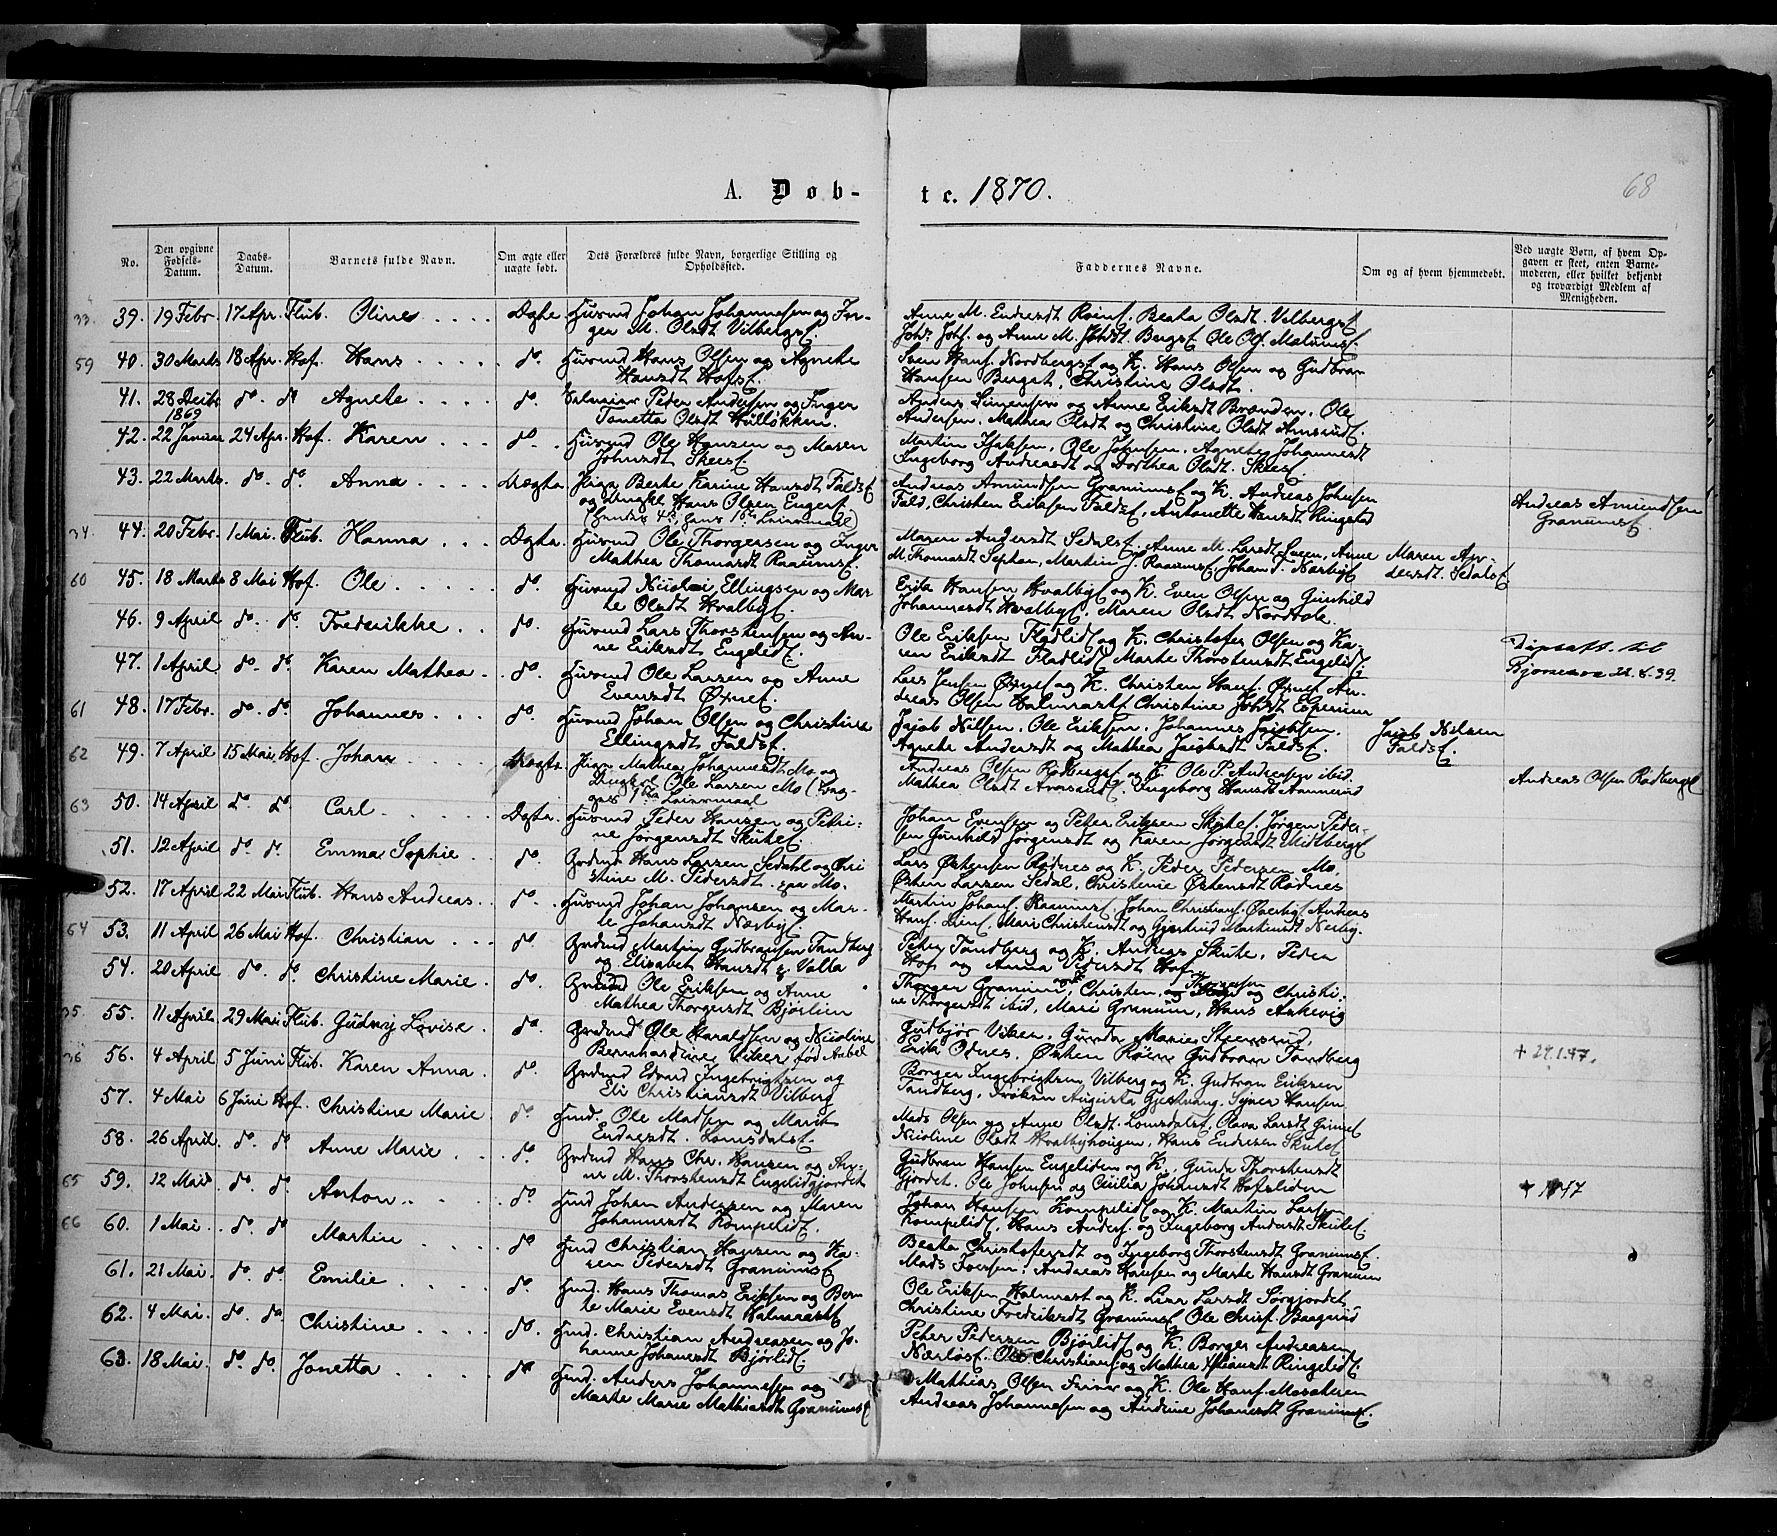 A. Døb-
te. 1870.
68
No.
Den opgivne Fødsels-Datum.
Daabs-Datum.
Barnets fulde Navn.
Om ægte eller uægte født.
Dets Forældres fulde Navn, borgerlige Stilling og Opholdssted.
Faddernes Navne.
Om og af hvem hjemmedøbt.
Ved uægte Børn, af hvem Opgaven er skeet, enten Barnemoderen, eller hvilket bekjendt og troværdigt Medlem af Menigheden.
33. 39. 19 Febr. 17 Apr. Flub. Oline Ægte. Huusmd Johan Johannesen og In-
ger M. Olsdt Vilbergsf.
Anne M. Endresdt Røinf. Beata Olsdt. Vilbergsf.
Johs. Johs. og Anne M. Johsdt. Bergsf. Ole Ols. Malumsf.
59 40. 30 Marts 18 Apr. Hof. Hans do. Huusmd Hans Olsen og Agnethe
Hansdt Hofsf.
Sven Hans. Nordbergsf og K. Hans Olsen og Gudbran
Hansen Berget, Christine Olsdt.
41. 28 Decbr 1869 do. do Agnete do. Peder Andersen og Inger
Tonetta Olsdt Hulløkken.
Anders Simensen og Anne Eriksdt Brænden. Ole
Andersen. Mathea Olsdt og Christine Olsdt Amrudsf.
42. 22 Januar 24 Apr. Hof. Karen do. Huusmd Ole Hansen og Maren
Johnsdt Skeesf.
Martin Isaksen, Ole Johnsen, Agnethe Johannesdt
Ingeborg Andreasdt og Dorthea Olsdt. Skeesf.
43. 22 Marts. do. do. Anna Uægte. Pige Berte Karine Hansdt Faldsf
og Ungkl Hans Olsen Engersf
(Hendes 4de, hans 1ste Leiermaal)
Andreas Amundsen Granumsf og K. Andreas Johnsen
Fald, Christen Eriksen Faldsf, Antonette Hansdt Ringstad
Andreas Amundsen
Granumsf.
34. 44. 20 Febr. 1 Mai. Flub. Hanna Ægte. Huusmd Ole Thorgersen og Inger
Mathea Thomasdt Raaumsf.
Maren Andersdt Sedalsf. Anne M. Larsdt Sveen, Anne
M. Thomasdt Sophau, Martin J. Raaumsf, Johan T. Nærbysf
Maren An-
dersdt. Sedalsf
60 45. 18 Marts 8 Mai Hof. Ole do. Huusmd Nicolai Ellingsen og Mar-
te Olsdt Hvalbysf.
Erik Hansen Hvalbysf og K. Even Olsen og Gunhild
Johannesdt Hvalbysf. Maren Olsdt Nordvole.
46. 9 April do. do. Frederikke do. Huusmd Lars Thorstensen og An-
ne Eriksdt Engelidsf.
Ole Eriksen Fladlidsf og K. Christofer Olsen og Ka-
ren Eriksdt Fladlidsf Marte Thorstensdt Engelidsf.
47. 1 April do. do. Karen Mathea do. Huusmd Ole Larsen og Anne
Evensdt Øxnesf.
Lars Jensen Øxnesf og K. Christen Hans. Øxnesf An-
dreas Olsen Halmrastsf Christine Johsdt Esperum
Dipsatt. til
Bjørnerae 22.8.39.
61 48. 17 Febr. do. do. Johannes do. Huusmd Johan Olsen og Christine
Ellingsdt Faldsf.
Jacob Nilsen. Ole Eriksen. Johannes Jacobsen.
Agnete Andersdt og Mathea Jacobsdt Faldsf.
Jacob Nilsen
Faldsf.
62 49. 7 April 15 Mai Hof. Johan Uægte. Pige Mathea Johannesdt Mo og
Ungkarl Ole Larsen Mo (Beg-
ges 1ste Leiermaal
Andreas Olsen Rødbergsf og K. Ole P. Andersen ibid.
Mathea Olsdt Amrudsf. Ingeborg Hansdt Ammerud
Andreas Olsen Rødbergsf
63 50. 14 April do. do. Carl Ægte. Huusmd Peder Hansen og Petri-
ne Jørgensdt Skutesf.
Johan Evensen og Peter Eriksen Skutesf. Jørgen Peder-
sen Gunhild Jørgensdt og Karen Jørgensdt Midlbergsf
51. 12 April do. do. Emma Sophie do. Grdmd Hans Larsen Sedahl og Chri-
stine M. Pedersdt paa Mo.
Lars Østensen Rødnes og K. Peder Pedersen Mo,
Østen Larsen Sedal, Christine Østensdt Rødnes
52. 17 April 22 Mai Flub. Hans Andreas do. Huusmd Johan Johansen og Mar-
te Johansdt Nærbysf.
Martin Johans. Raaumsf. Johan Christians. Øverbysf Andreas
Hans. Liens. Mari Christensdt og Gjertrud Martinsdt Nerby.
64 53. 11 April 26 Mai Hof. Christian do Grdmd Martin Gudbrandsen Tandberg
og Elisabet Hansdt f. Volla
Peter Tandberg og K. Andreas Skute, Peder
Hof og Anna Pedersdt Hof.
54. 20 April do. do. Christine Marie do. Grdmd Ole Eriksen og Anne
Mathea Thorgersdt Bjørlien
Thorger Granum, Christen og Christi-
ne Thorgersdt ibid, Mari Granum, Hans Askevig
35. 55. 11 April 29 Mai Flub. Gudny Lovise do. Grdmd Ole Haraldsen og Nicoline
Bernhardine Viker, fød Aubel
Gudbjør Viken. Gunda Marie Skeensrud.
Erik Odnes. Østen Røine Gudbran Tandberg
36 56. 4 April 5 Juni Flub. Karen Anna do. Grdmd Edvard Ingebrigtsen og
Eli Christiansdt Vilberg
Borger Ingebrigtsen Vilberg og K. Gudbran Eriksen
Tandberg, Frøken Augusta Gjestvang. Syver Hansen
+ 29.1.47.
57. 4 Mai 6 Juni Hof. Christine Marie do Hmd. Ole Madsen og Marit
Endresdt. Lomsdalsf.
Mads Olsen og Anne Olsdt. Lomsdalsf, Olava Larsdt Grimsf
Nicoline Olsdt Hvalbyhougen, Hans Endresen Skutesf
58. 26 April. do. do Anne Marie do. Grdmd Hans Chr. Hansen og An-
ne M. Thorstensdt Engelidgjordet
Gudbran Hansen Engeliden og K. Gunda Thorstensdt
Gjordet. Ole Johnsen og Cecilia Johansdt Hofsliden
65 59. 12 Mai do. do. Anton do Hmd Johan Andersen og Maren
Johannesdt Kompelidsf.
Johan Hansen Kompelidsf og K. Martin Larsen
Kompelidsf, Hans Anders. og Ingeborg Andersdt Skutesf.
+ 1947
66 60. 1 Mai. do. do Martin do Hmd Christian Hansen og Ka-
ren Pedersdt Granumsf
Beata Christofersdt og Ingeborg Thorstensdt Granumsf.
Mads Iversen. Andreas Hansen og Marte Hansdt Granum
61. 21 Mai. do. do. Emilie do. Hmd. Hans Thomas Eriksen og Ber-
te Marie Evensdt Halmrastsf
Ole Eriksen Halmrast og K. Lisa Larsdt Sørgjordet
Christine Fredriksdt Granumsf Ole Chrisf. Baagrud
62. 4 Mai. do. do. Christine do. Hmd. Christian Andreasen og Jo-
hanne Johansdt Bjørlidsf.
Peter Pedersen Bjørlidsf og K. Borger Andreasen
Nærløsf. Ole Christians. og Mathea Hansdt Ringelidsf.
63. 18 Mai. do. do. Jonetta do Hmd. Anders Johannesen og
Marte Marie Mathiasdt Granumsf
Mathias Olsen og K. Ole Hans. Mosakeren
Andreas Johannesen og Andrine Johansdt Granumsf.